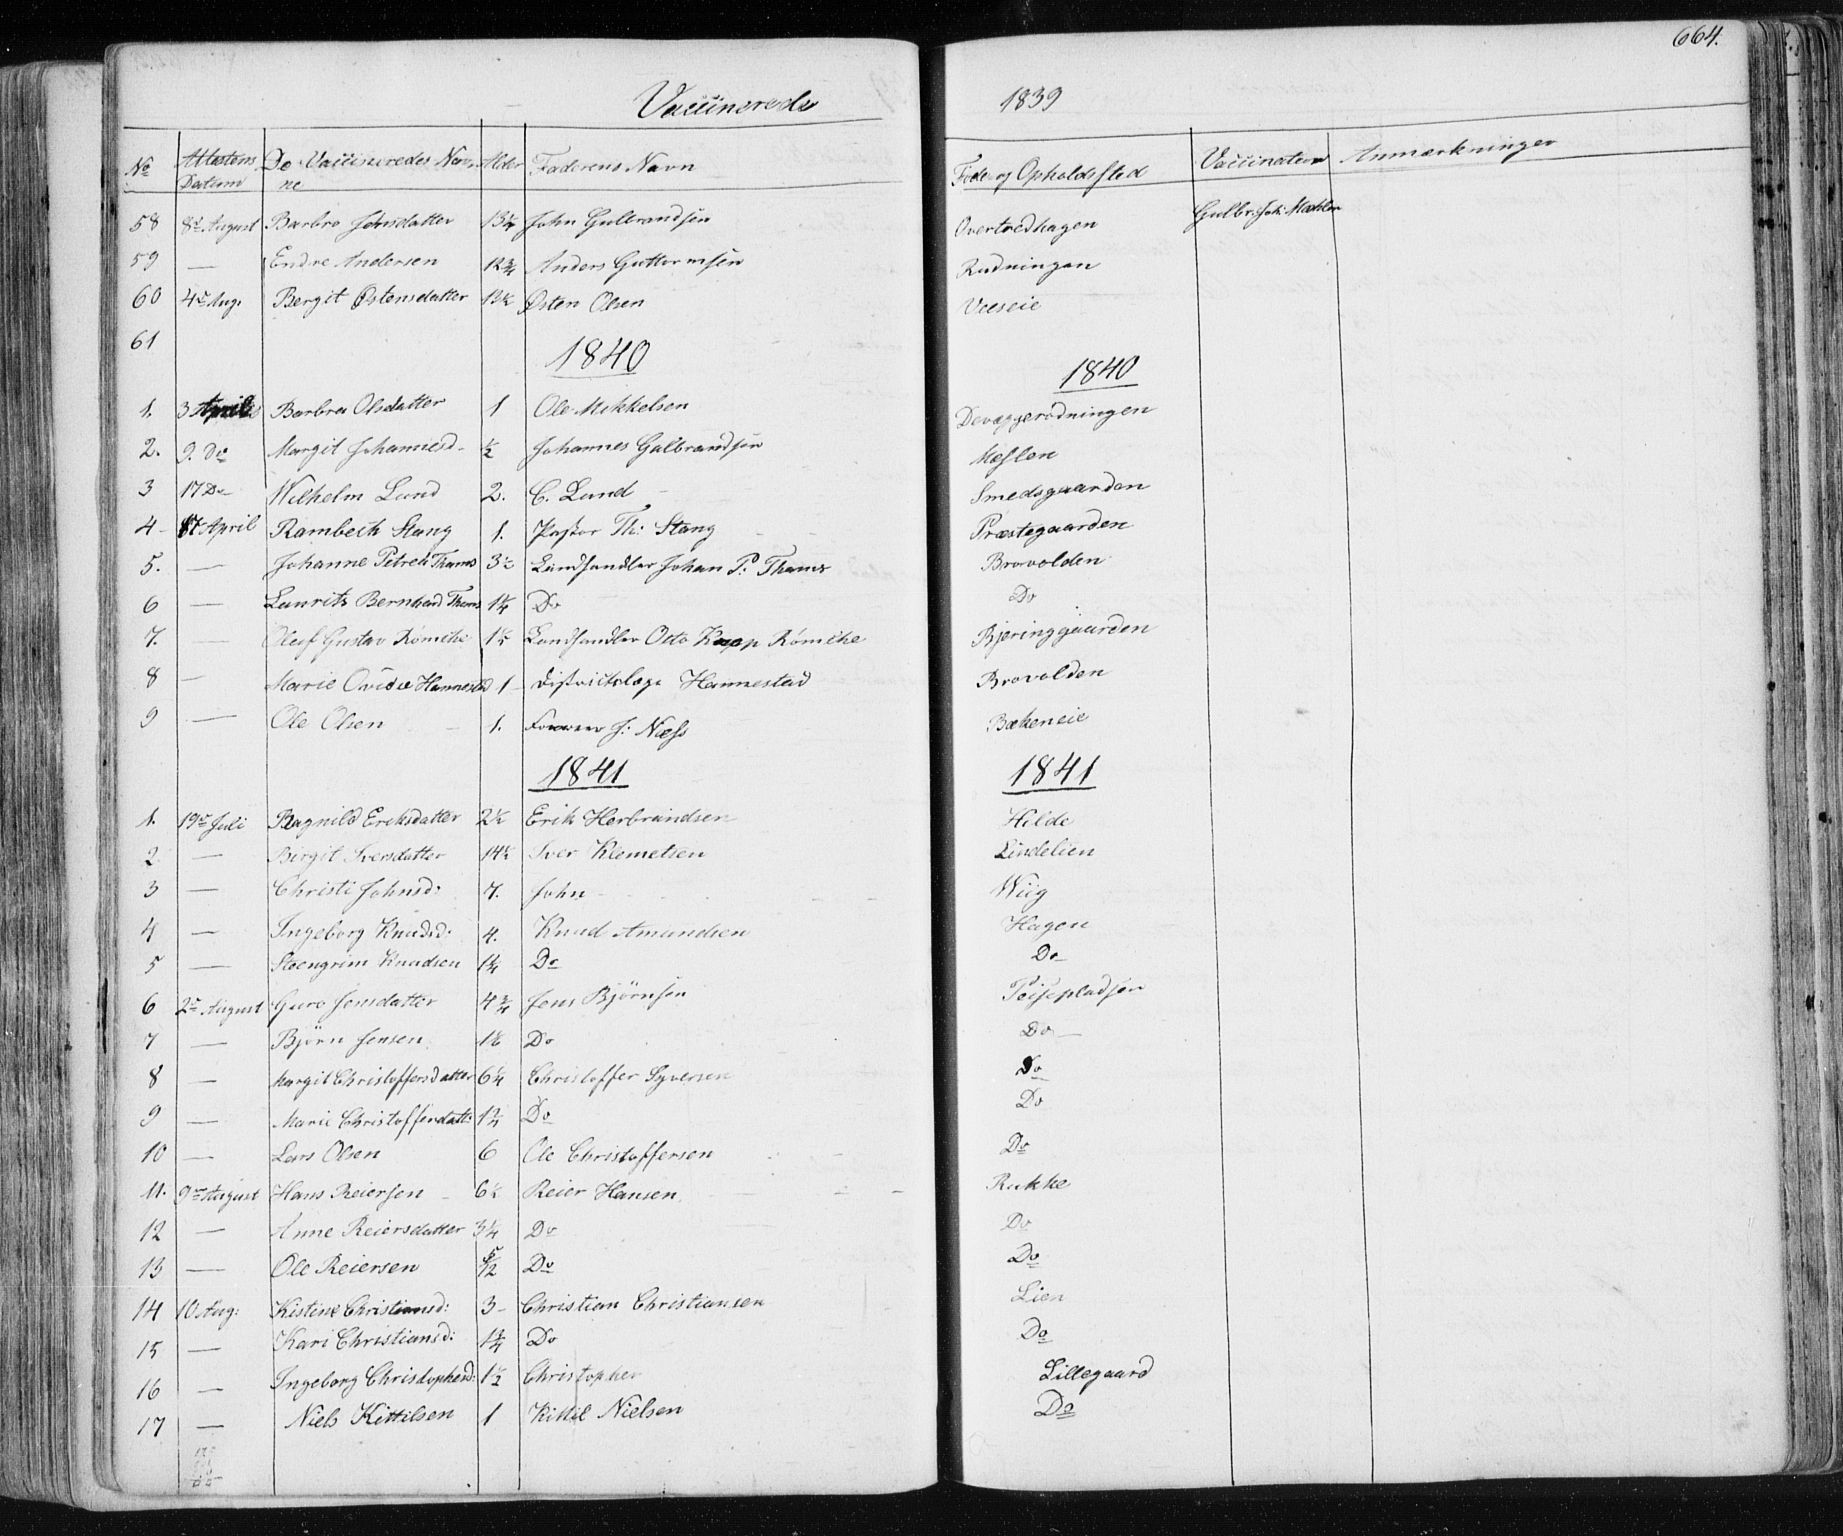 664.
Vaccinerede 1839
No Attestens Datum De Vaccineredes Navne Alder Faderens Navn Føde- og Opholdssted Vaccinateur Anmærkninger
58 8de August Barbro Johnsdatter 13 John Gulbrandsen Overtrædhagen Gulbr: Joh:
59 — Endre Andersen 12 3/4 Anders Guttormsen Rudningen
60 4de Aug. Bergit Østensdatter 13 1/2 Østen Olsen Veeseie
61
1840 1840
1. 3 April Barbra Olsdatter 1 Ole Mikkelsen
2. 9. Do Margit Johannesd. 1/2 Johannes Gulbrandsen Meslen
3 17 Do Wilhelm Lund 2. C. Lund Smedsgaarden
4 17 April Rambech Stang 1. Pastor Th: Stang Præstegaarden
5. — Johanne Petrea Thams 3 1/2 Landhandler Johan P. Thams Brovolden
6 — Laurits Bernhard Thams 1 1/4 Do Do
7. — Oluf Gustav Römcke 1 1/2 Landhandler Otto Kaap Römcke Bjeringgaarden
8 — Marie Ovidie Hannestad 1 Districtslæge Hannestad Brovolden
9 — Ole Olsen 1. J: Næss Bækeneie
1841 1841
1. 19de Juli Ragnild Eriksdatter 2 1/2 Erik Herbrandsen Hilde
2 — Birgit Iversdatter 14 1/2 Iver Klemetsen Lindelien
3 — Christi Johnsd: 7. John Wiig
4 — Ingeborg Knudsd: 4. Knud Amundsen Hagen
5 — Steengrim Knudsen 1 3/4 Do Do
6 2den August Guro Jensdatter 4 3/4 Jens Bjørnsen
7 — Bjørn Jensen 1 1/2 Do Do
8 — Margit Christoffersdatter 6 1/4 Christoffer Syversen Do
9 — Marie Christofferdatt: 1 3/4 Do Do
10 — Lars Olsen 6 Ole Christoffersen Do
11. 9de August Hans Reiersen 6 1/2 Reier Hansen Rukke
12 — Anne Reiersdatter 3 1/4 Do Do
13 — Ole Reiersen 5/12 Do Do
14 10 Aug: Kistine Christiansd: 3 Christian Christiansen Lien
15 — Kari Christiansd: 1 3/4 Do Do
16 — Ingeborg Christophersd: 1 1/2 Christopher Lillegaard
17 — Niels Kittilsen 1 Kittil Nielsen Do